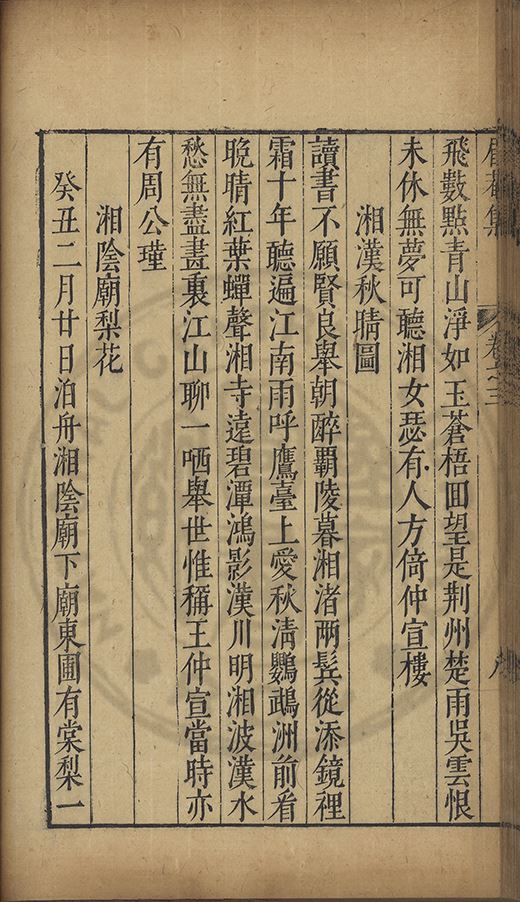 卷之三
飛數點青山淨如玉蒼梧囬望是荆州楚雨吳雲恨
未休無夢可聽湘女瑟有人方倚仲宣樓
湘漢秋晴圖
讀書不願賢良舉朝醉覇陵暮湘渚兩鬂從添鏡裡
霜十年聽遍江南雨呼鷹臺上愛秋淸鸚鵡洲前看
晚晴紅葉蟬聲湘寺遠碧潭鴻影漢川明湘波漢水
愁無盡畫裏江山聊一哂舉世惟稱王仲宣當時亦
有周公瑾
湘陰廟梨花
癸丑二月廿日泊舟湘陰廟下廟東圃有棠梨一